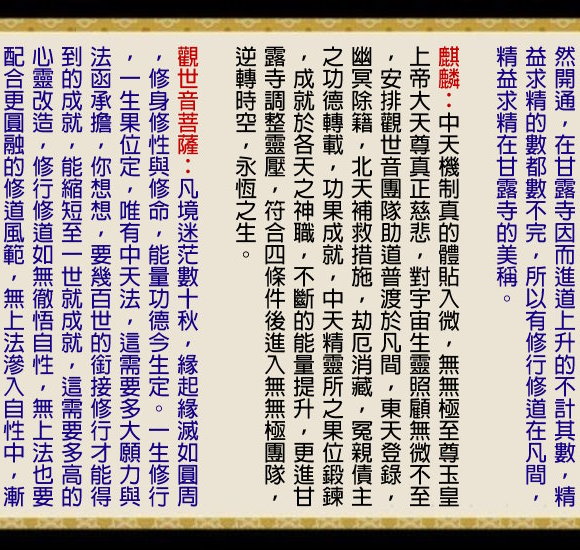 然開通，在甘露寺因而進道上升的不計其數，精
益求精的數都數不完，所以有修行修道在凡間，
精益求精在甘露寺的美稱。
麒麟：中天機制真的體貼入微，無無極至尊玉皇
上帝大天尊真正慈悲，對宇宙生靈照顧無微不至
，安排觀世音團隊助道普渡於凡間，東天登錄，
幽冥除籍，北天補救措施，劫厄消藏，冤親債主
之功德轉載，功果成就，中天精靈所之果位鍛鍊
，成就於各天之神職，不斷的能量提升，更進甘
露寺調整靈壓，符合四條件後進入無無極團隊，
逆轉時空，永恆之生。
觀世音菩薩：凡境迷茫數十秋，緣起緣滅如圓周
，修身修性與修命，能量功德今生定。一生修行
，一生果位定，唯有中天法，這需要多大願力與
法函承擔，你想想，要幾百世的銜接修行才能得
到的成就，能縮短至一世就成就，這需要多高的
心靈改造，修行修道如無徹悟自性，無上法也要
配合更圓融的修道風範，無上法滲入自性中，漸